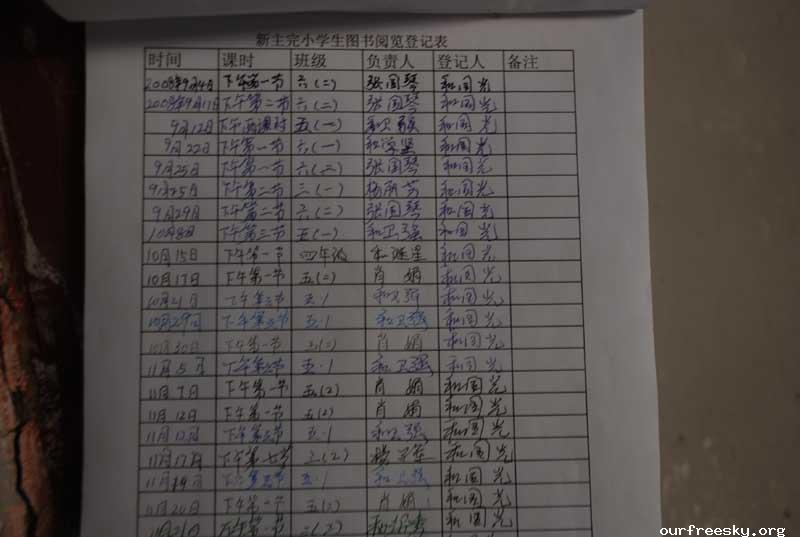 新主完小学生图书阅览登记表
时间 课时 班级 负责人 登记人 备注
2008年9月4日 下午第一节 六(二) 张国琴 和国光
2008年9月11日 下午第二节 六(二) 张国琴 和国光
9月12日 下午两课时 五(一) 和卫强 和国光
9月22日 下午第一节 六(一) 和学坚 和国光
9月25日 下午第一节 六(二) 张国琴 和国光
9月25日 下午第二节 三(一) 杨丽芳 和国光
9月29日 下午第二节 六(二) 张国琴 和国光
10月8日 下午第三节 五(一) 和卫强 和国光
10月15日 下午第一节 四年级 和国光
10月17日 下午第一节 五(二) 肖娟 和国光
10月21日 下午第三节 五·1 和卫强 和国光
10月29日 下午第三节 五·1 和卫强 和国光
10月30日 下午第一节 肖娟 和国光
11月5日 下午第三节 五·1 和卫强 和国光
11月7日 下午第一节 五(2) 肖娟 和国光
11月12日 下午第一节 五(2) 肖娟 和国光
11月12日 下午第三节 五·1 和卫强 和国光
11月17日 下午第 三(2) 和国光
11月19日 下午第三节 五·1 和卫强 和国光
11月20日 下午第一节 五(二) 肖娟 和国光
11月21日 下午第一节 和国光
ourfreesky.org